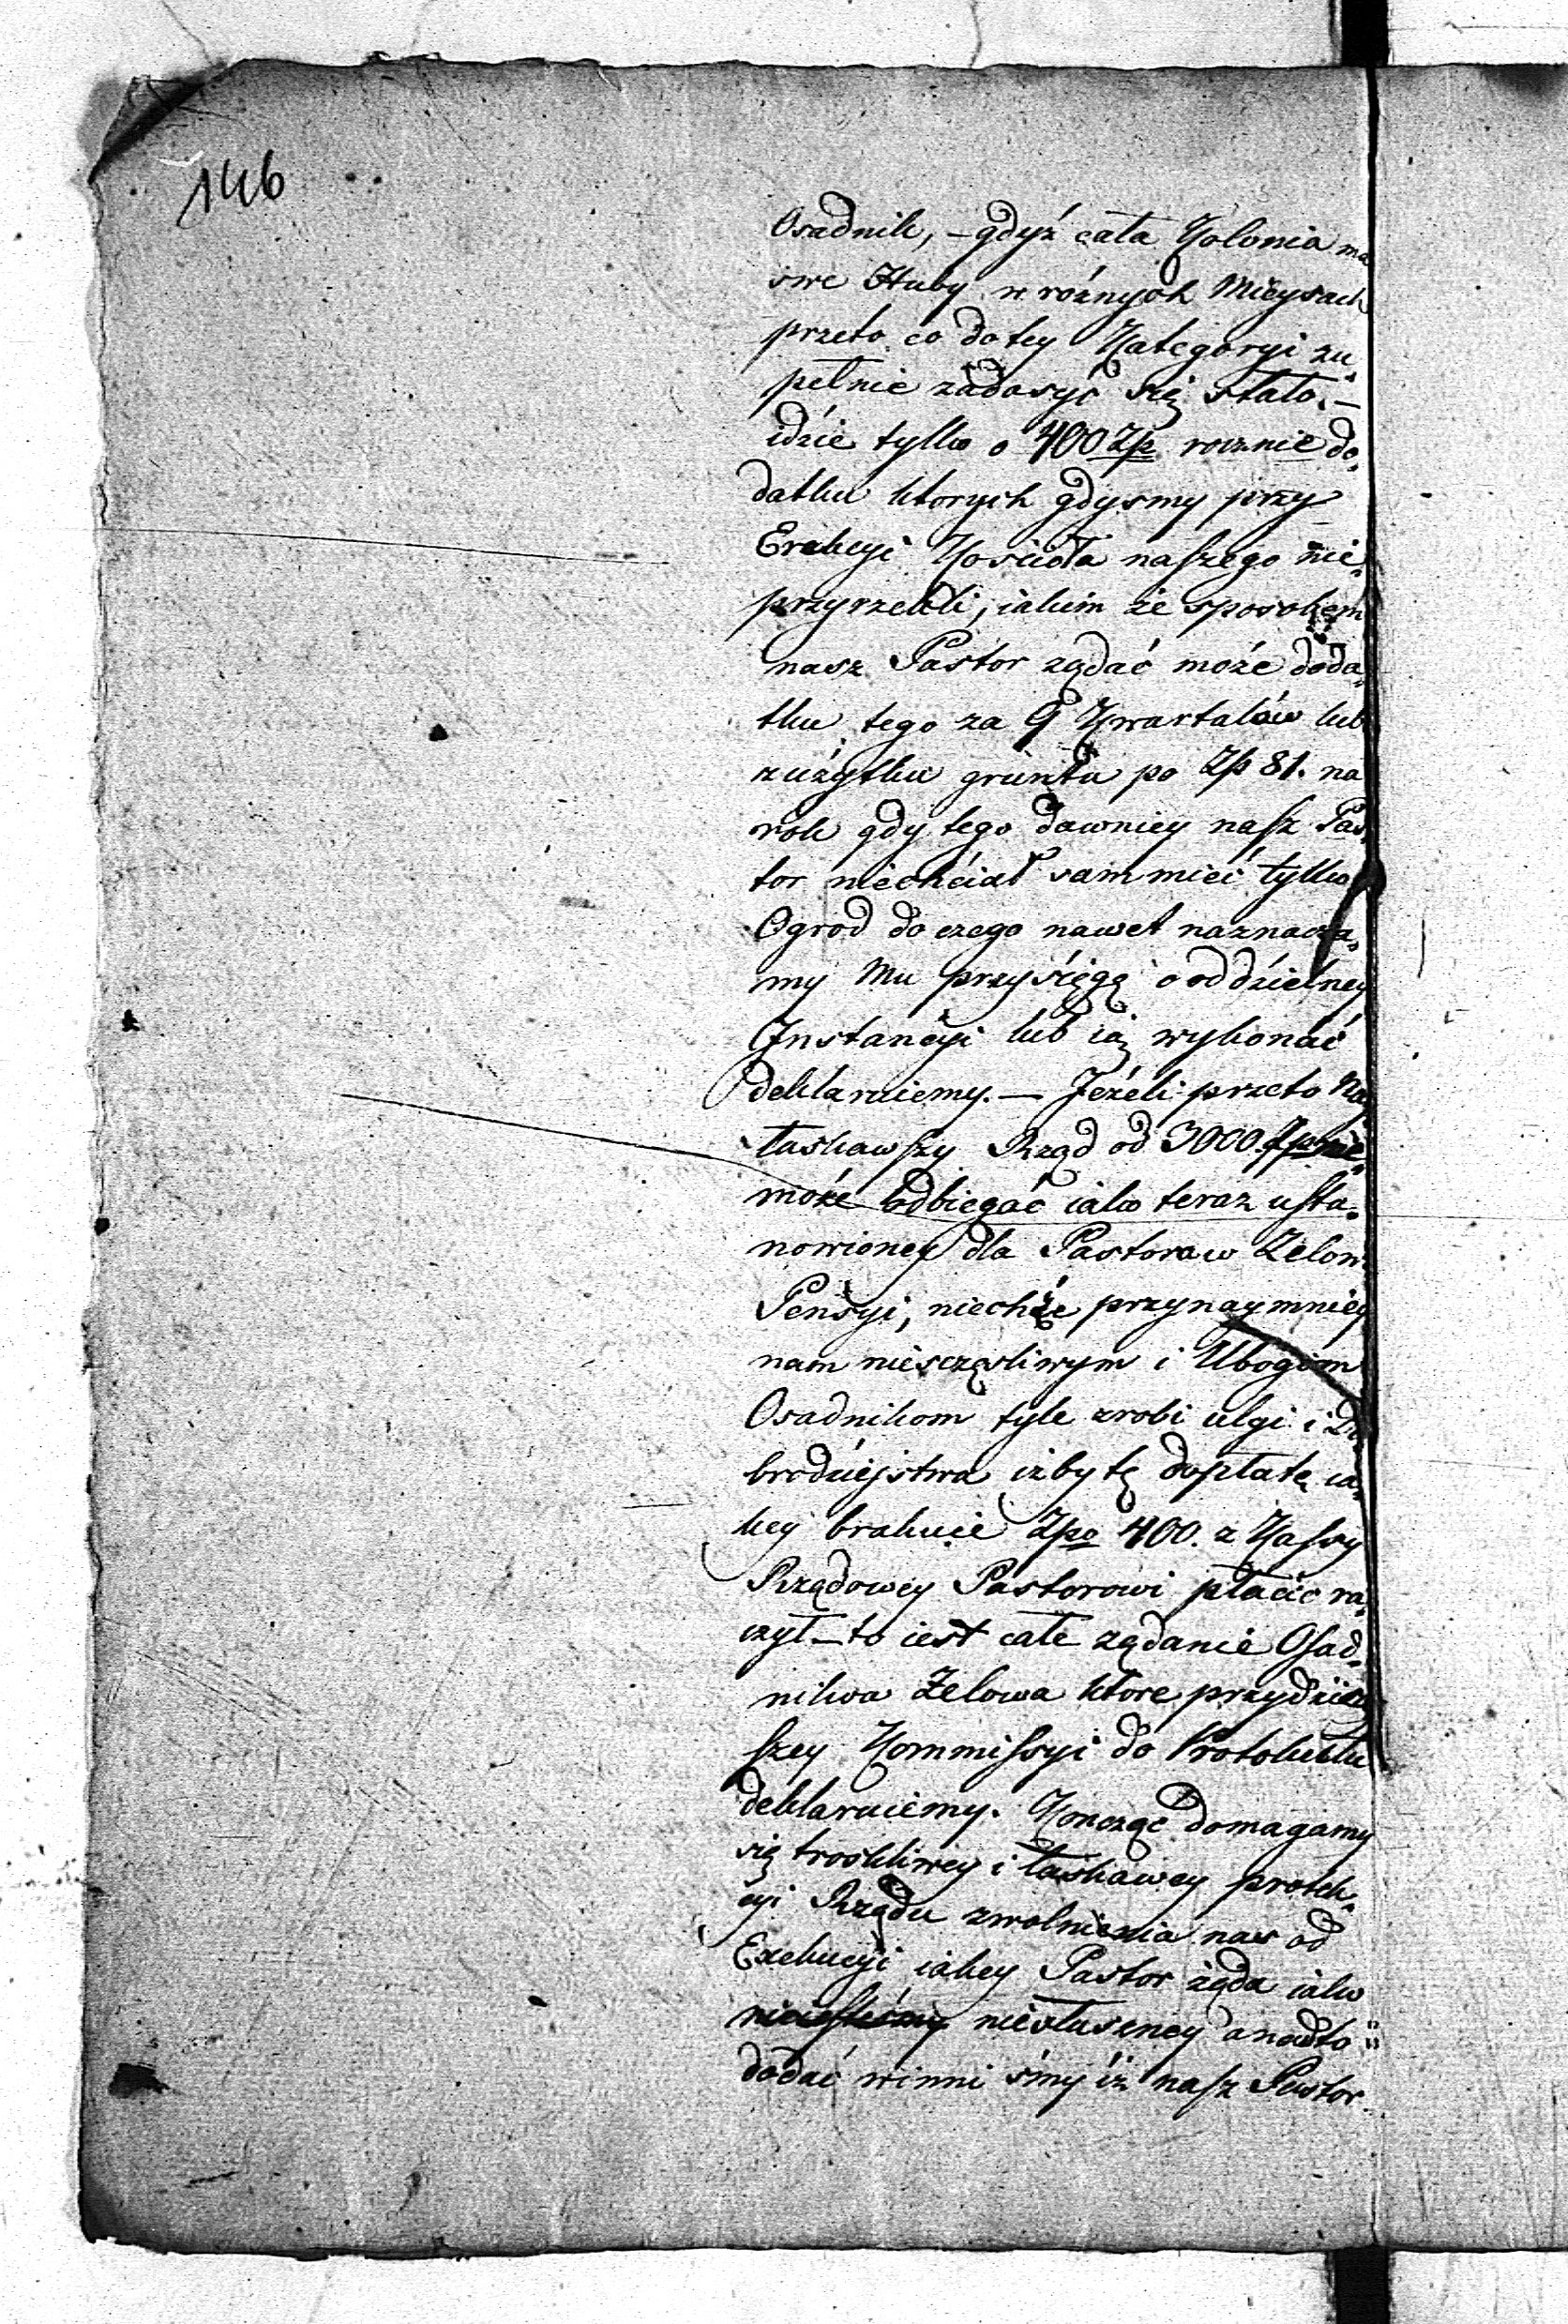 146
Osadnik, – gdyż cała Kolonia ma
swe Huby w różnych Mieysach
przeto co do tey Kategoryi zu„
pełnie zadosyć się stało, –
idzie tylko o 400 Zp rocznie do„
datku ktorych gdysmy przy
Erekcyi Kościoła naszego nie„
przyrzekli, iakim że sposobem
nasz Pastor ządać może doda„
tku tego za 9 Kwartałów lub
zużytku gruntu po Zp 81. na
rok gdy tego dawniey nasz Pas„
tor niechciał sam mieć tylko
Ogrod do czego nawet naznacza„
my Mu przysięgę o oddzielney
Instancyi lub ią wykonać
deklaruiemy. – Jeżeli przeto Nay
łaskawszy Rząd od 3000 Zp nie„
może odbiegać iako teraz usta„
nowioney dla Pastora w Zelow
Pensyi, niechże przynaymniey
nam niesczęsliwym i Ubogim
Osadnikom tyle zrobi ulgi i Do„
brodziejstwa iżby tę dopłatę ia„
key brakuie Zpo 400. z Kassy
Rządowey Pastorowi płacić ra„
czył – to iest całe ządanie Osad„
nikwa Zelowa ktore przy dziey
szey Kommissyi do Protokułu
deklaruiemy. Koncząc domagamy
się troskliwey i łaskawey protek„
cyi Rządu zwolnienia nas od
Exekucyi iakey Pastor żąda iako
niesłuszney a nadto
dodać winni śmy iż nasz Pastor